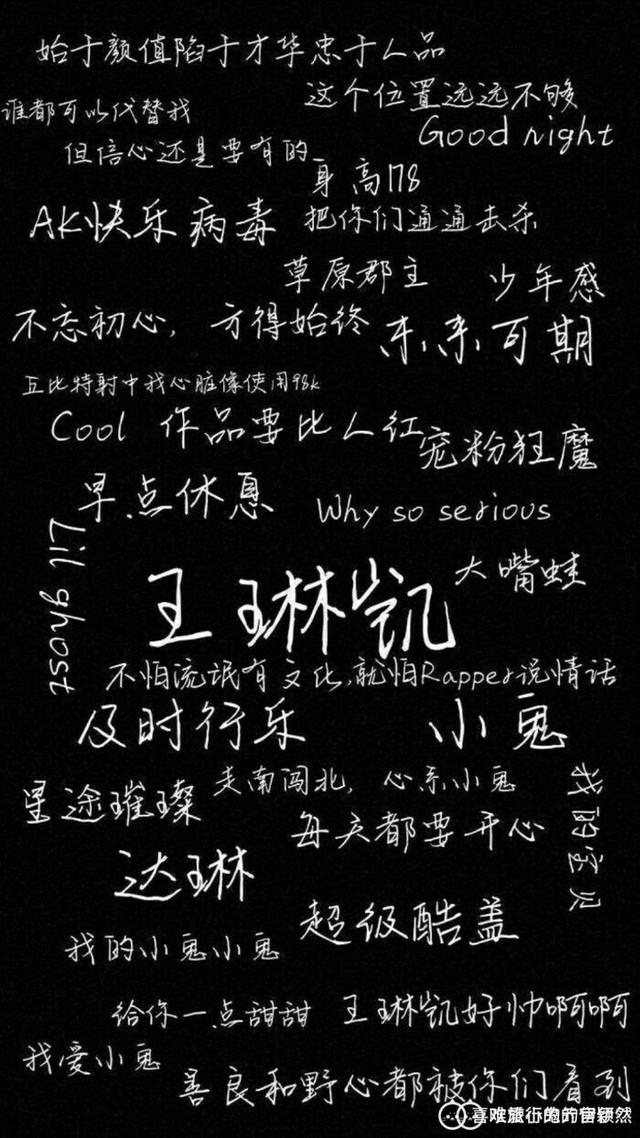 始于颜值陷于才华忠于人品
这个位置远远不够
谁都可以代替我
Good night
但信心还是要有的
身高178
AK快乐病毒
把你们通通击杀
草原郡主
少年感
不忘初心，方得始终
未来可期
丘比特射中我心脏像使用98k
Cool
作品要比人红
宠粉狂魔
早点休息
Why so serious
Lil ghost
大嘴蛙
王琳凯
不怕流氓有文化,就怕Rapper说情话
及时行乐
小鬼
走南闯北，心系小鬼
星途璀璨
我的宝贝
每天都要开心
达琳
超级酷盖
我的小鬼小鬼
给你一点甜甜
王琳凯好帅啊啊
我爱小鬼
善良和野心都被你们看到